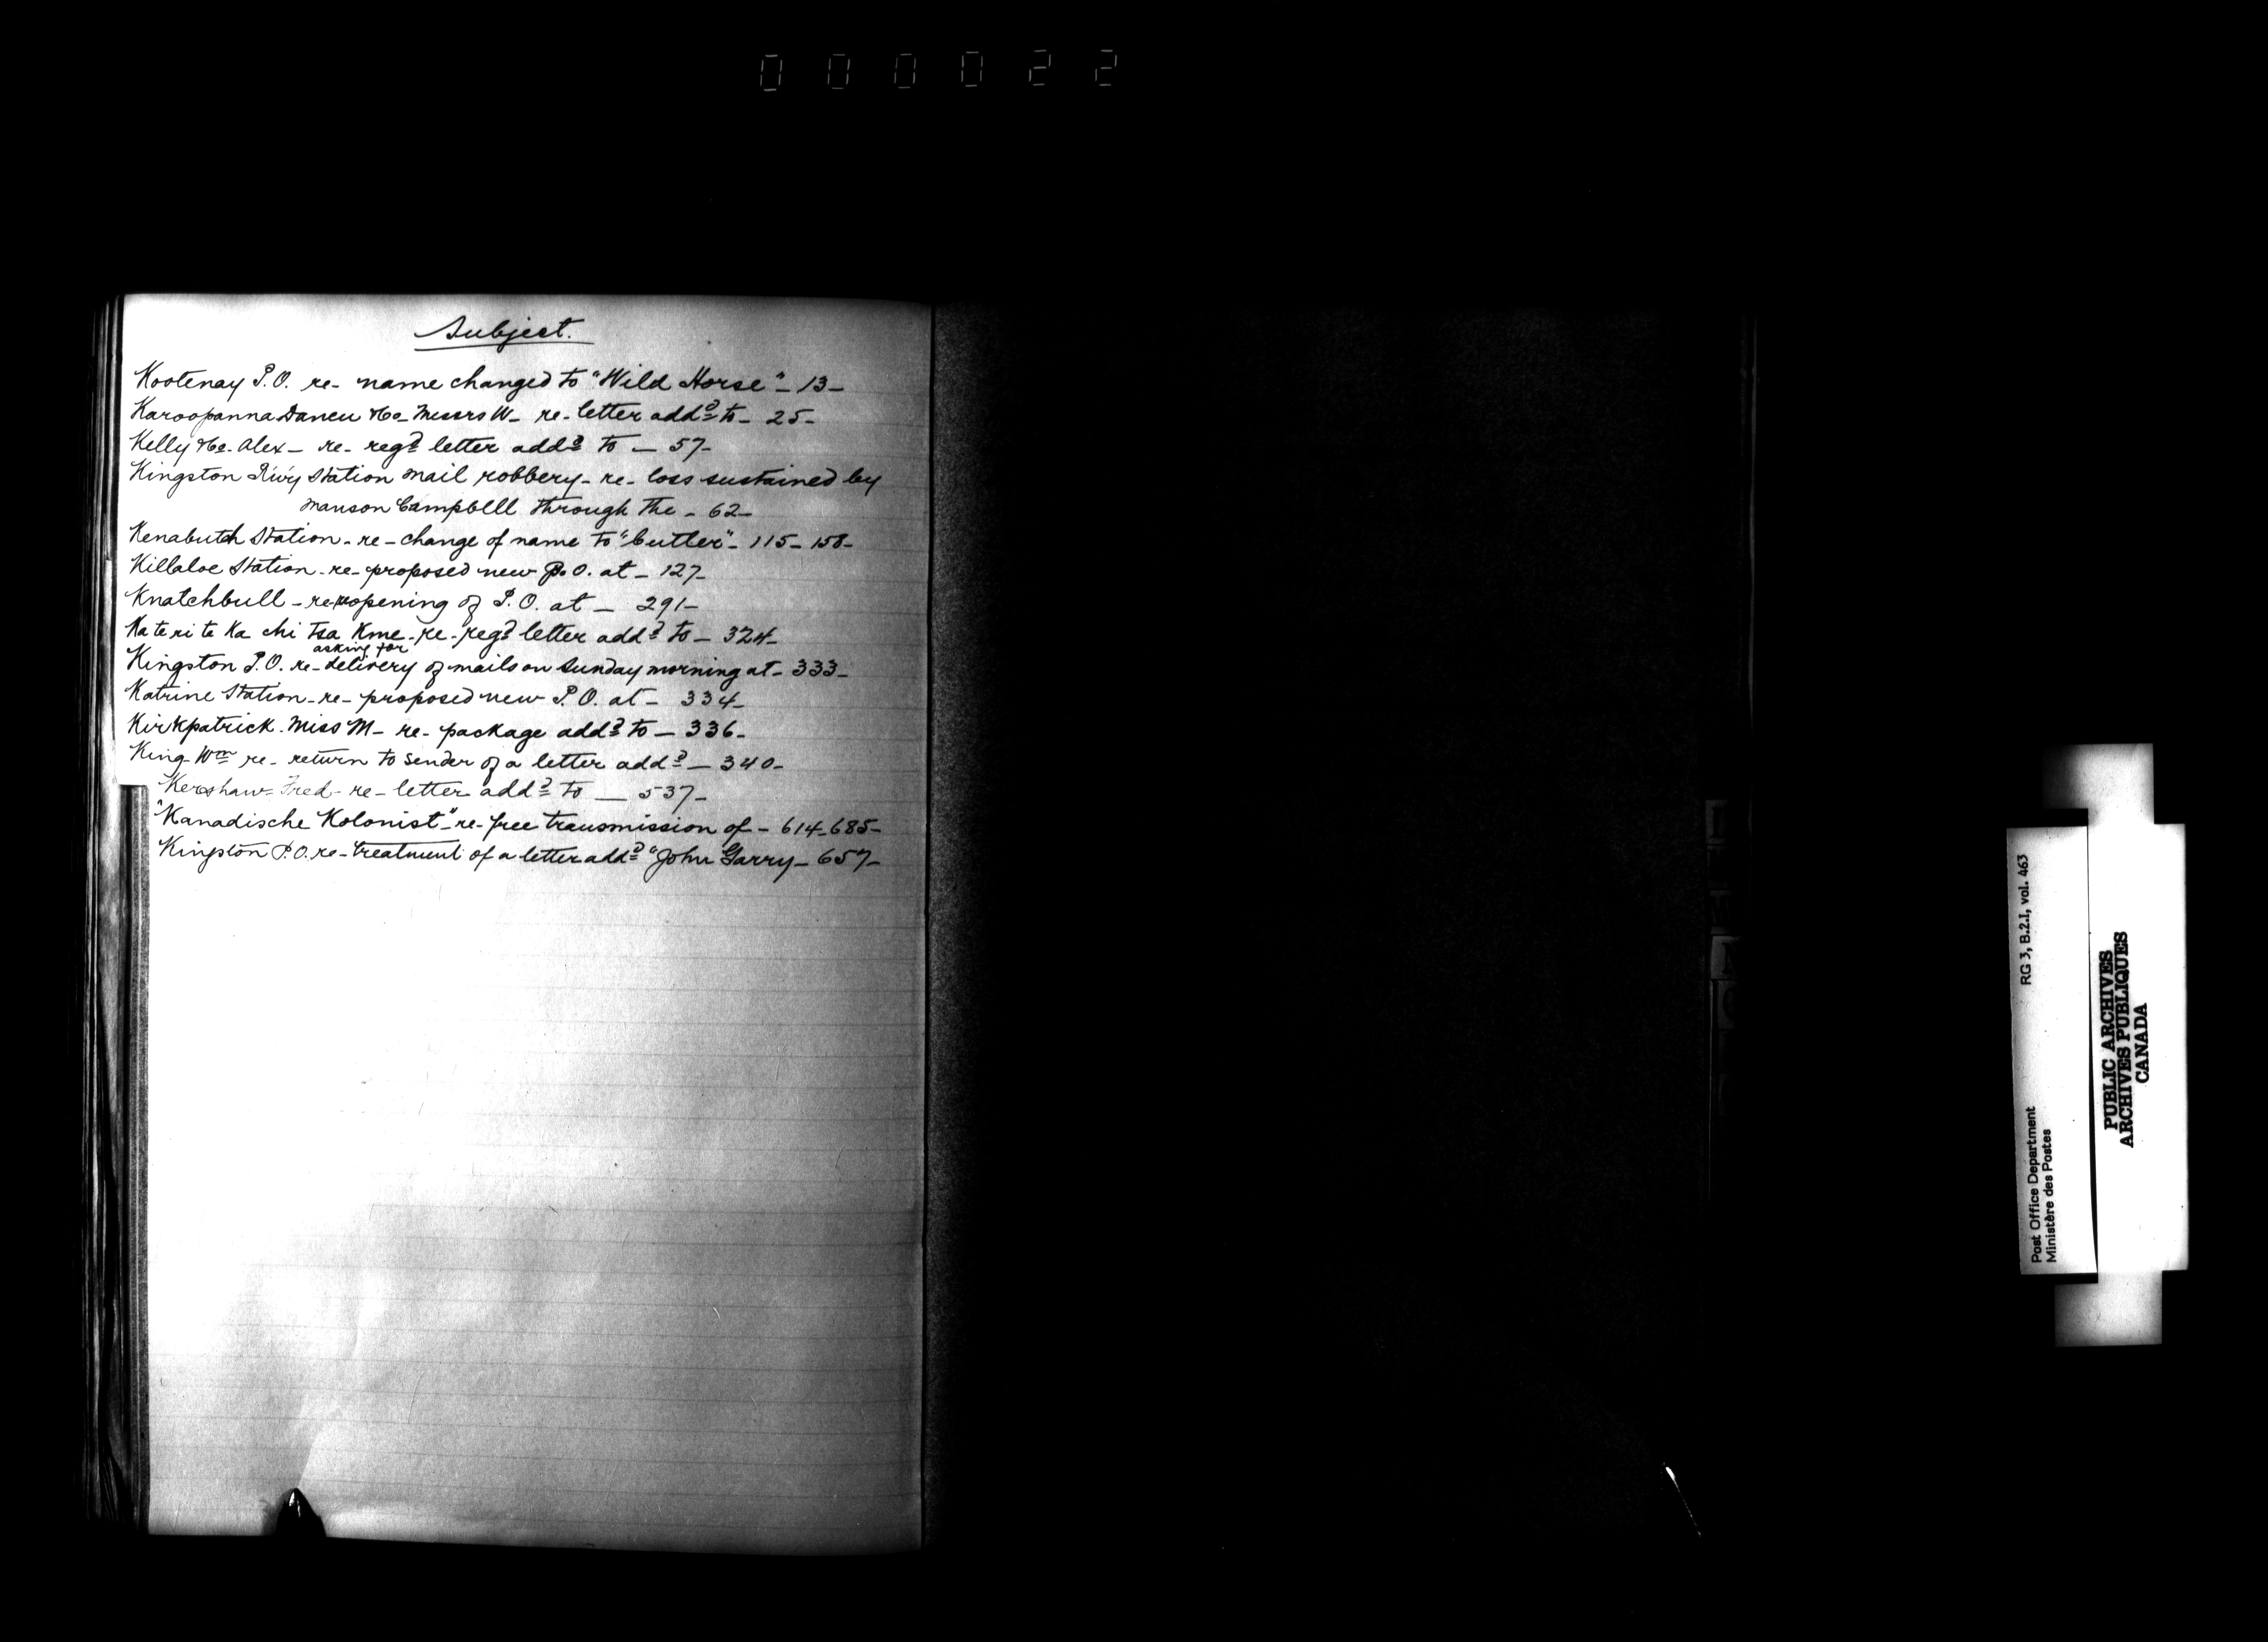 000022
Subject.
Kootenay P.O. re- name changed to "Wild Horse" - 13-
Karoopanna Daneu &Co- Messrs W- re- letter addd to- 25-
Kelly &Co- Alex- re- regd letter addd to - 57-
Kingston R'w'y Station mail robbery- re- loss sustained by
Manson Campbell through the - 62-
Kenabutch Station- re- change of name to "Cutler"- 115- 158-
Killaloe Station- re- proposed new P.O. at - 127-
Knatchbull - re- reopening of P.O. at - 291-
Ka te ri te Ka chi Tsa Kme- re- regd letter addd to - 324-
asking for
Kingston P.O. re- delivery of mails on Sunday morning at - 333-
Katrine Station- re- proposed new P.O. at - 334-
Kirkpatrick- Miss M- re- package addd to - 336-
King- Wm re- return to sender of a letter addd - 340-
Kershaw- Fred- re- letter addd to - 537-
"Kanadische Kolonist"- re- free transmission of - 614-685-
Kingston P.O. re- treatment of a letter addd "John Garry- 657-
Post Office Department
Ministère des Postes
RG 3, B.2.I, vol. 463
PUBLIC ARCHIVES
ARCHIVES PUBLIQUES
CANADA